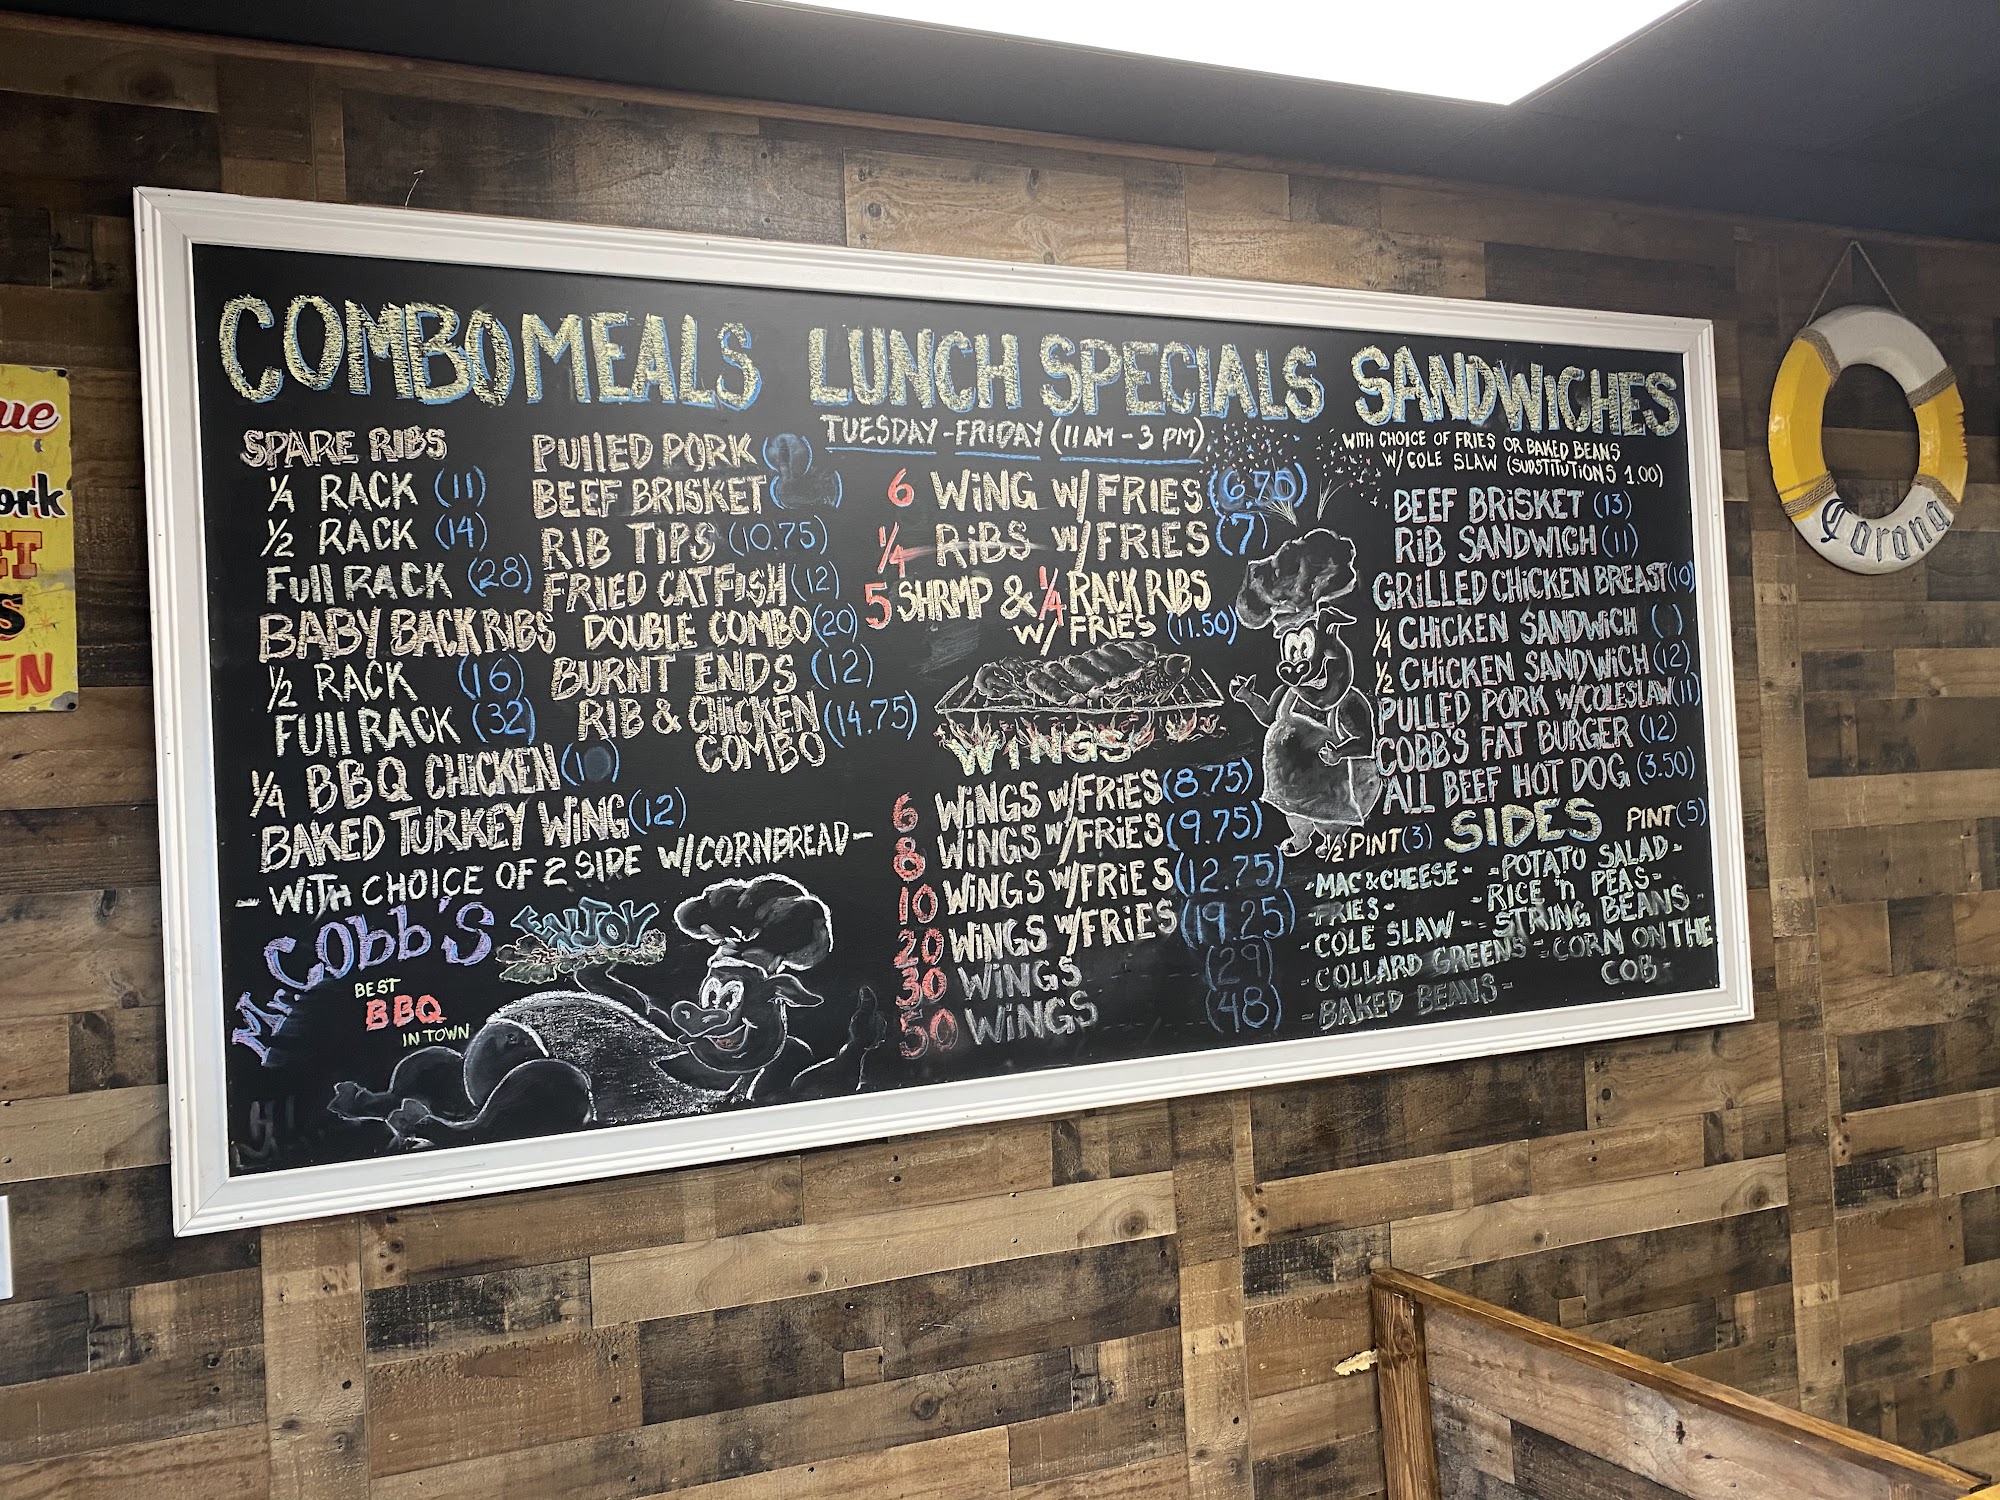 COMBO MEALS
SPARE RIBS
1/4 RACK (11)
1/2 RACK (14)
FUll RACK (28)
BABY BACK RIBS
1/2 RACK (16)
FUll RACK (32)
1/4 BBQ CHiCKEN (10)
BAKED TURKEY WiNG (12)
PUllED PORK
BEEF BRISKET
RIB TIPS (10.75)
FRIED CATFISH (12)
DOUBLE COMBO (20)
BURNT ENDS (12)
RIB & CHICKEN COMBO (14.75)
- WITH CHOICE OF 2 SIDE W/CORNBREAD -
Mr. CObb'S
BEST
BBQ
IN TOWN
ENJOY
LUNCH SPECIALS
TUESDAY - FRIDAY (11 AM - 3 PM)
6 WiNG W/ FRIES (6.75)
1/4 RiBS W/ FRIES (7)
5 SHRMP & 1/4 RACK RIBS
W/ FRIES (11.50)
WINGS
6 WiNGS W/FRiES (8.75)
8 WiNGS W/FRiES (9.75)
10 WiNGS W/FRiES (12.75)
20 WiNGS W/FRiES (19.25)
30 WiNGS (29)
50 WiNGS (48)
SANDWiCHES
WITH CHOICE OF FRIES OR BAKED BEANS
W/ COLE SLAW (SUBSTITUTIONS 1.00)
BEEF BRiSKET (13)
RiB SANDWICH (11)
GRiLLED CHiCKEN BREAST (10)
1/4 CHiCKEN SANDWiCH ( )
1/2 CHiCKEN SANDWiCH (12)
PULLED PORK W/COLESLAW (11)
COBB'S FAT BURGER (12)
ALL BEEF HOT DOG (3.50)
1/2 PINT (3) SIDES PINT (5)
-MAC & CHEESE-
-FRIES-
-COLE SLAW-
-COLLARD GREENS-
-BAKED BEANS-
-POTATO SALAD-
-RICE 'n PEAS-
-STRING BEANS-
-CORN ON THE
COB-
Corona
ue
ork
ET
S
EN